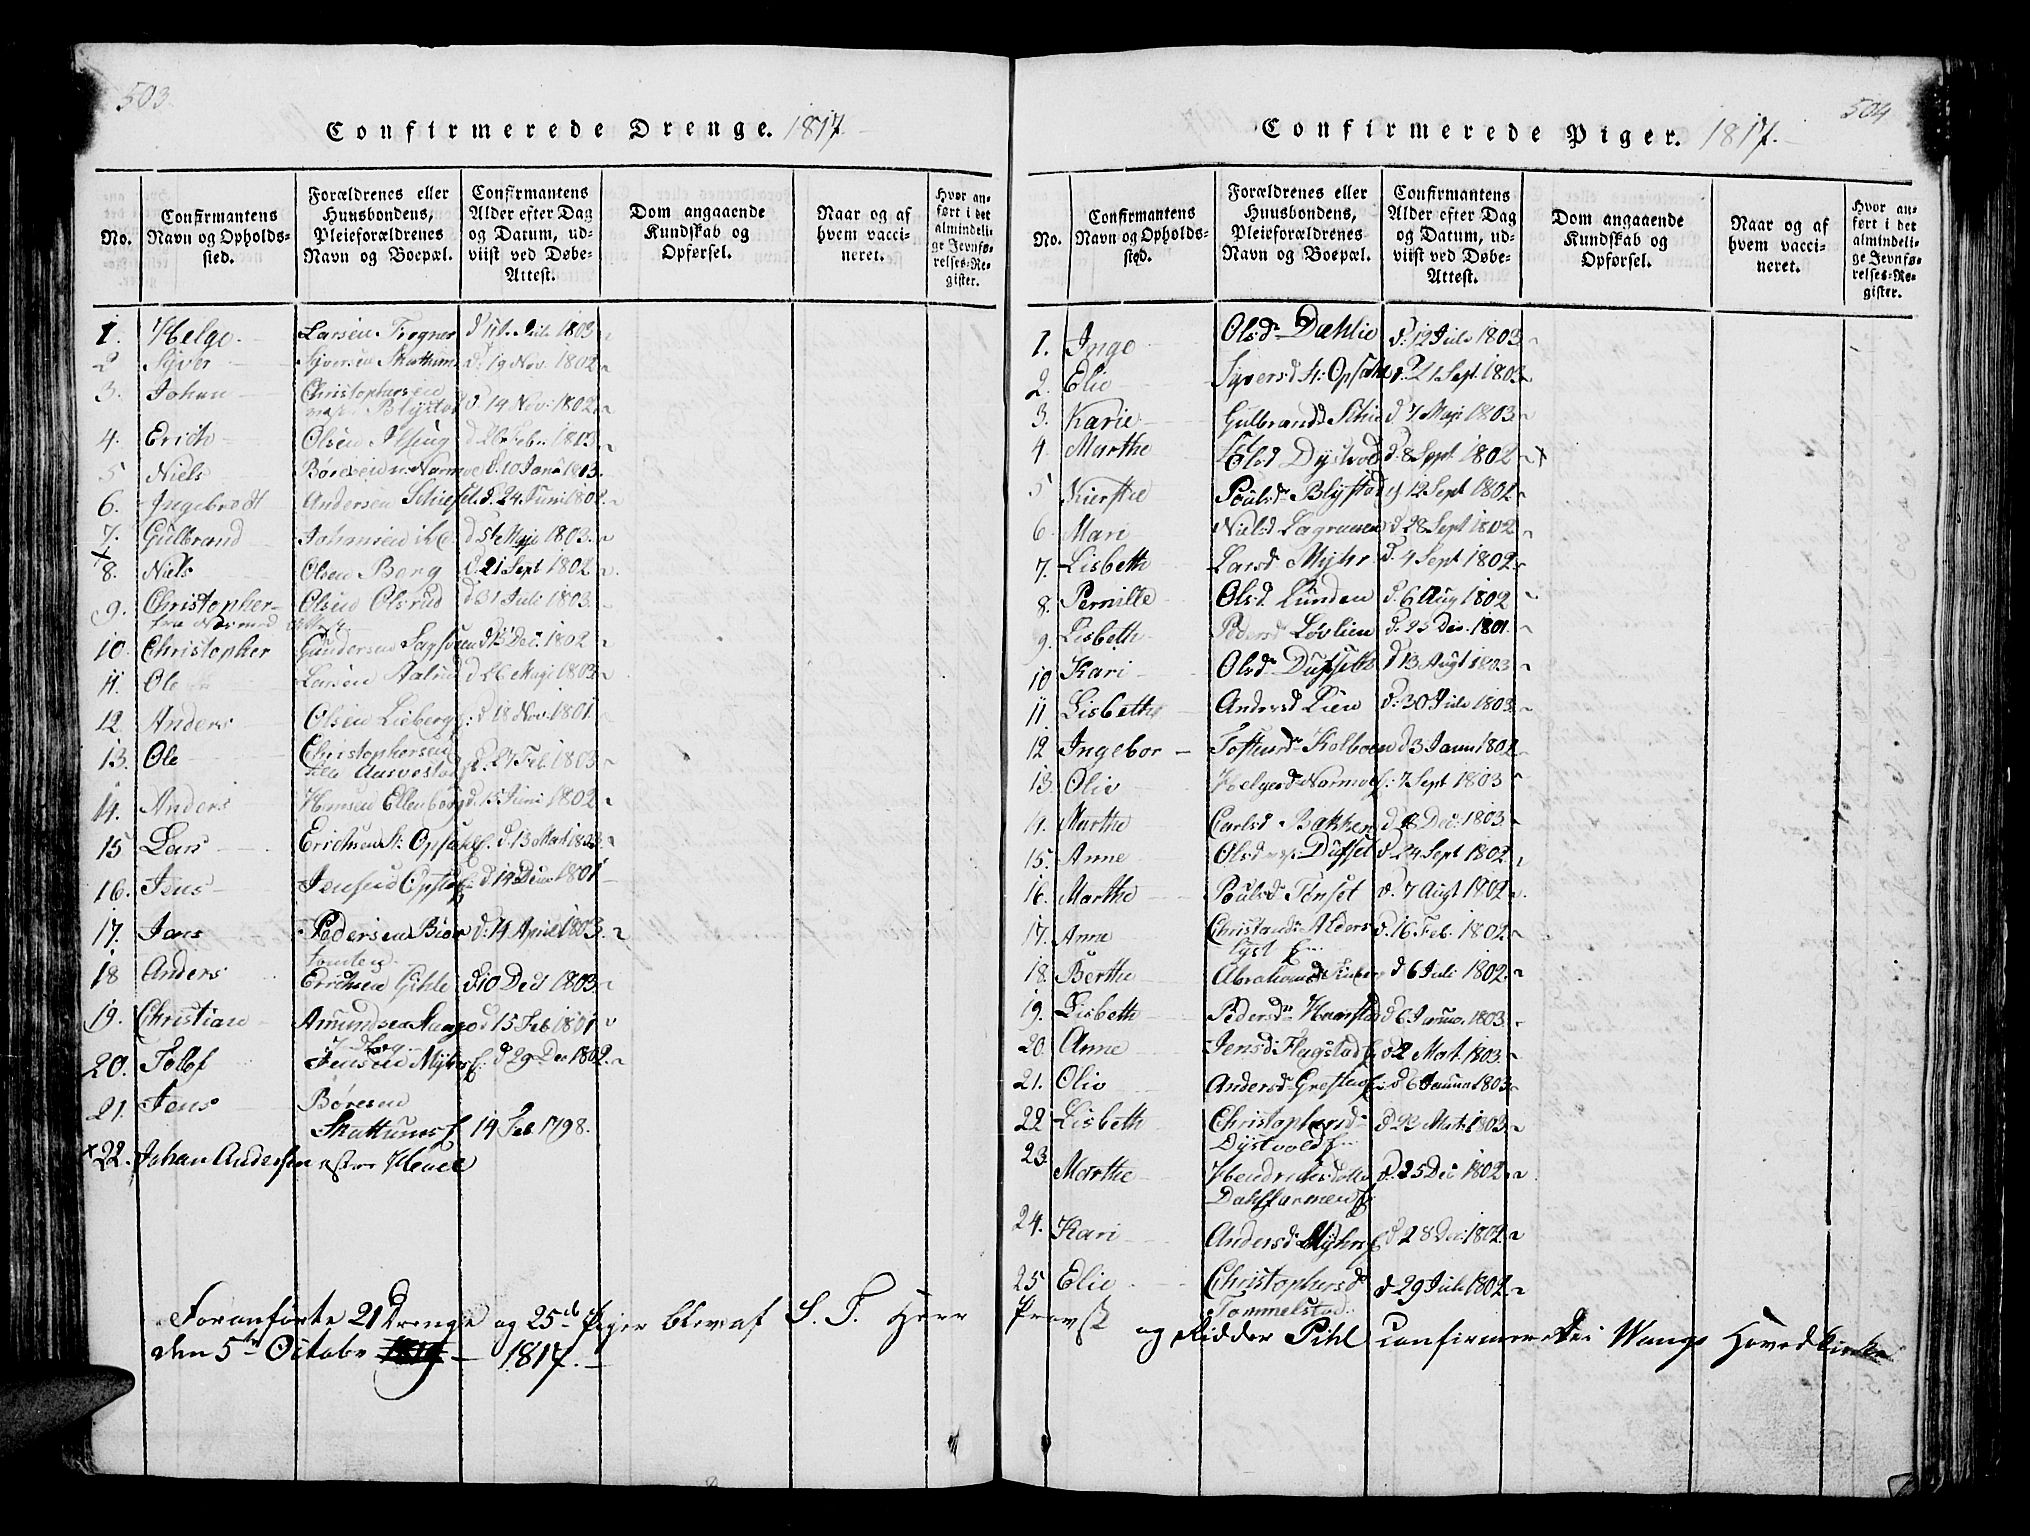 503.
Confirmerede Drenge. 1817.
No.
Confirmantens Navn og Opholds-sted.
Forældrenes eller Huusbondens, Pleieforældrenes Navn og Boepæl.
Confirmantens Alder efter Dag og Datum, ud-viist ved Døbe-Attest.
Dom angaaende Kundskab og Opførsel.
Naar og af hvem vacci-neret.
Hvor an-ført i det almindeli-ge Jevnfø-relses-Re-gister.
1. Helge Larsen Trogner d 1803
2 Syver Syversen Skattum d: 19 Nov. 1802
3. Johan Christophersen
Blystad d. 14 Nov: 1802
4. Erich Olsen d 26 Febr. 1803
5 Niels d: 10 Jan: 1803.
6. Ingebredt Andersen d. 24 Juni 1802.
7. Gulbrand Johansen d 5te Maji 1803.
8. Niels Olsen Berg d. 21 Sept 1802
9. Christopher Olsen Olsrud d 31 Juli 1803.
10. Christopher Gundersen Sagsveen d 13 Dec. 1802
11. Ole Larsen d 26 Maji 1803
12 Anders Olsen Lieberg d 18 Nov. 1801.
13. Ole Christophersen
Aarvestad d. 27 Feb. 1803
14. Anders Hansen Ellenborg d. 15 Juni 1802
15 Lars Erichsen Opsahl d. 13 Mart 1803
16. Jens Jensen d 14 Dec 1801
17. Jens Pedersen Biør d: 14 April 1803.
tomten
18 Anders Erichsen Gihle d 10 Dec 1803
19. Christian Amundsen d 15 Feb 1801
20. Tolof Jensen d 29 Dec 1802.
21. Jens Børesen
Skattums 14 Feb 1798.
22. Johan Andersen
Foranførte 21 Drenge og 25 Piger blev af S. T. Herr
den 5te Octobr 1817.
504
Confirmerede Piger. 1817.
No.
Confirmantens Navn og Opholds-sted.
Forældrenes eller Huusbondens, Pleieforældrenes Navn og Boepæl.
Confirmantens Alder efter Dag og Datum, ud-viist ved Døbe-Attest.
Dom angaaende Kundskab og Opførsel.
Naar og af hvem vacci-neret.
Hvor an-ført i det almindeli-ge Jevnfø-relses-Re-gister.
1. Inge Olsd Dæhlie d: 12 Juli 1803
2. Elie Syversd St: Opsahl d. 21 Sept. 1803
3. Karie Gulbrandsd d 7 Maji 1803
4 Marthe Olsd Dystvold d. 8 Sept 1802
5 Kierstie Poulsd Blystad d 12 Sept 1802
6. Mari Nielsd d 28 Sept 1802
7. Lisbeth Larsd Myhr d. 4 Sept 1802
8. Pernille Olsd. Lunden d. 6 Aug 1802
9. Lisbeth Pedersd Løvlien d. 25 Dec. 1801.
10 Kari Olsd d 13 Augt 1803
11 Lisbeth Andersd Lien d: 30 Juli 1803
12 Ingebor Kolboen d 3 Janu 1802
13. Oliv Helgesd Normo 7 Sept 1803
14. Marthe Carlsd Bakken d 8 Dec. 1803
15. Anne Olsd d. 24 Sept 1802
16. Marthe Poulsd Tønset d. 7 Augt 1802
17. Anne Christiansd Alders d. 16 Feb. 1802
lyst
18. Berthe Abrahamsd d 6 Juli 1802
19. Lisbeth Pedersd Haarstad d 6 Janua. 1803
20. Anne Jensd Flagstad d 2 Mart. 1803
21. Oliv Andersd Grestad d 6 Janua 1803
22 Lisbeth Christophersd d 23 Mart. 1803
Dystvold
23. Marthe d. 25 Dec 1802
24. Kari Andersd Myhrs d 28 Dec. 1802
25 Elie Christophersd d 29 Juli 1802
Tommelstad
Provst og Ridder Pihl Confirmerede i Wangs Hovedkirke